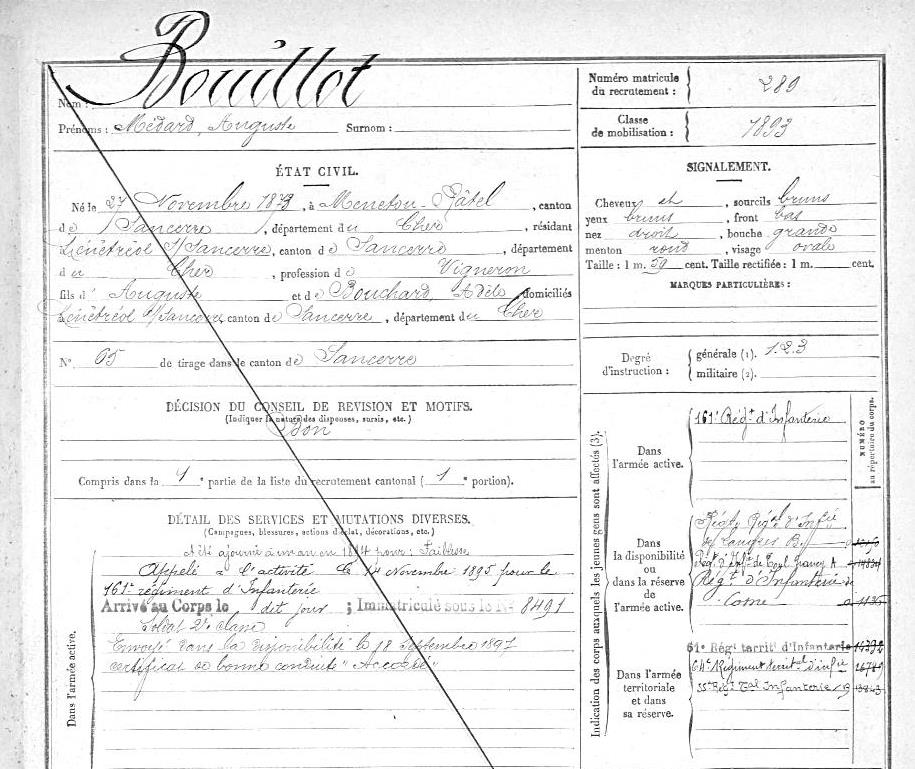 Nom : Bouillot
Prénoms : Médard, Auguste Surnom :
Numéro matricule du recrutement : 289
Classe de mobilisation : 1893
ÉTAT CIVIL.
Né le 27 Novembre 1873, à Menetou-Râtel, canton
de Sancerre, département du Cher, résidant
S/Sancerre, canton de Sancerre, département
du Cher, profession de Vigneron
fils d' Auguste et de Bouchard, Adèle domiciliés
S/Sancerre canton de Sancerre, département du Cher
N° 65 de tirage dans le canton de Sancerre
SIGNALEMENT.
Cheveux et, sourcils bruns
yeux bruns, front bas
nez droit, bouche grande
menton rond, visage ovale
Taille : 1 m. 59 cent. Taille rectifiée : 1 m. cent.
MARQUES PARTICULIÈRES :
Degré d'instruction : générale (1). 1.2.3
militaire (2).
DÉCISION DU CONSEIL DE REVISION ET MOTIFS.
(Indiquer la nature des dispenses, sursis, etc.)
Bon
Compris dans la 1e partie de la liste du recrutement cantonal (1e portion).
DÉTAIL DES SERVICES ET MUTATIONS DIVERSES.
(Campagnes, blessures, actions d'éclat, décorations, etc.)
Dans l'armée active.
A été ajourné à un an en 1894 pour : Faiblesse
Appelé à l'activité le 14 Novembre 1895 pour le
161e régiment d'Infanterie
Arrivé au Corps le det jour ; Immatriculé sous le No 8491
Soldat 2e classe
Envoyé dans la disponibilité le 18 Septembre 1897
certificat de bonne conduite "Accordé"
Indication des corps auxquels les jeunes gens sont affectés (3).
NUMÉRO au répertoire du corps.
Dans l'armée active.
161e Régt d'Infanterie
Dans la disponibilité ou dans la réserve de l'armée active.
Régt d'Infie
Régt d'Infanterie de
Cosne 1136
Dans l'armée territoriale et dans sa réserve.
61e Régt territl d'Infanterie
64e Régiment territal d'infie
Régt Tal Infanterie